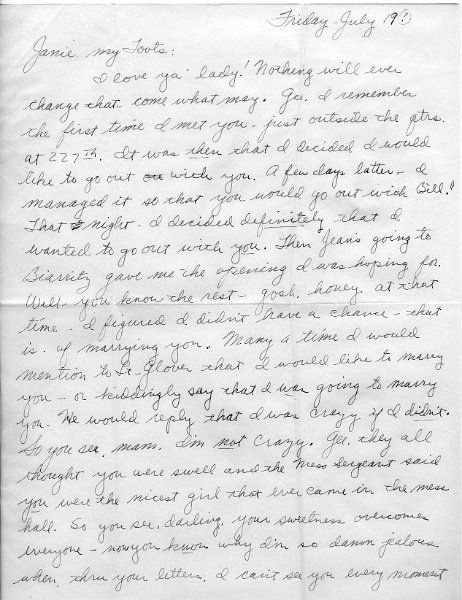 Friday - July 19(?)
Janie my Toots:
I love ya' lady! Nothing will ever
change that come what may. Gee, I remember
the first time I met you - just outside the qtrs.
at 227th. It was then that I decided I would
like to go out with you. A few days latter - I
managed it so that you would go out with Bill."
That night - I decided definitely that I
wanted to go out with you. Then Jean's going to
Biarritz gave me the opening I was hoping for.
Well - you know the rest - gosh, honey, at that
time - I figured I didn't have a chance - that
is - of marrying you. Many a time I would
mention to Lt. Glover that I would like to marry
you - or kiddingly say that I was going to marry
you. He would reply that I was crazy if I didn't.
So you see, mam, I'm not crazy. Gee, they all
thought you were swell and the Mess Sergeant said
you were the nicest girl that ever came in the mess
hall. So you see, darling, your sweetness overcomes
everyone - now you know why I'm so damn jealous
when, thru your letters, I can't see you every moment